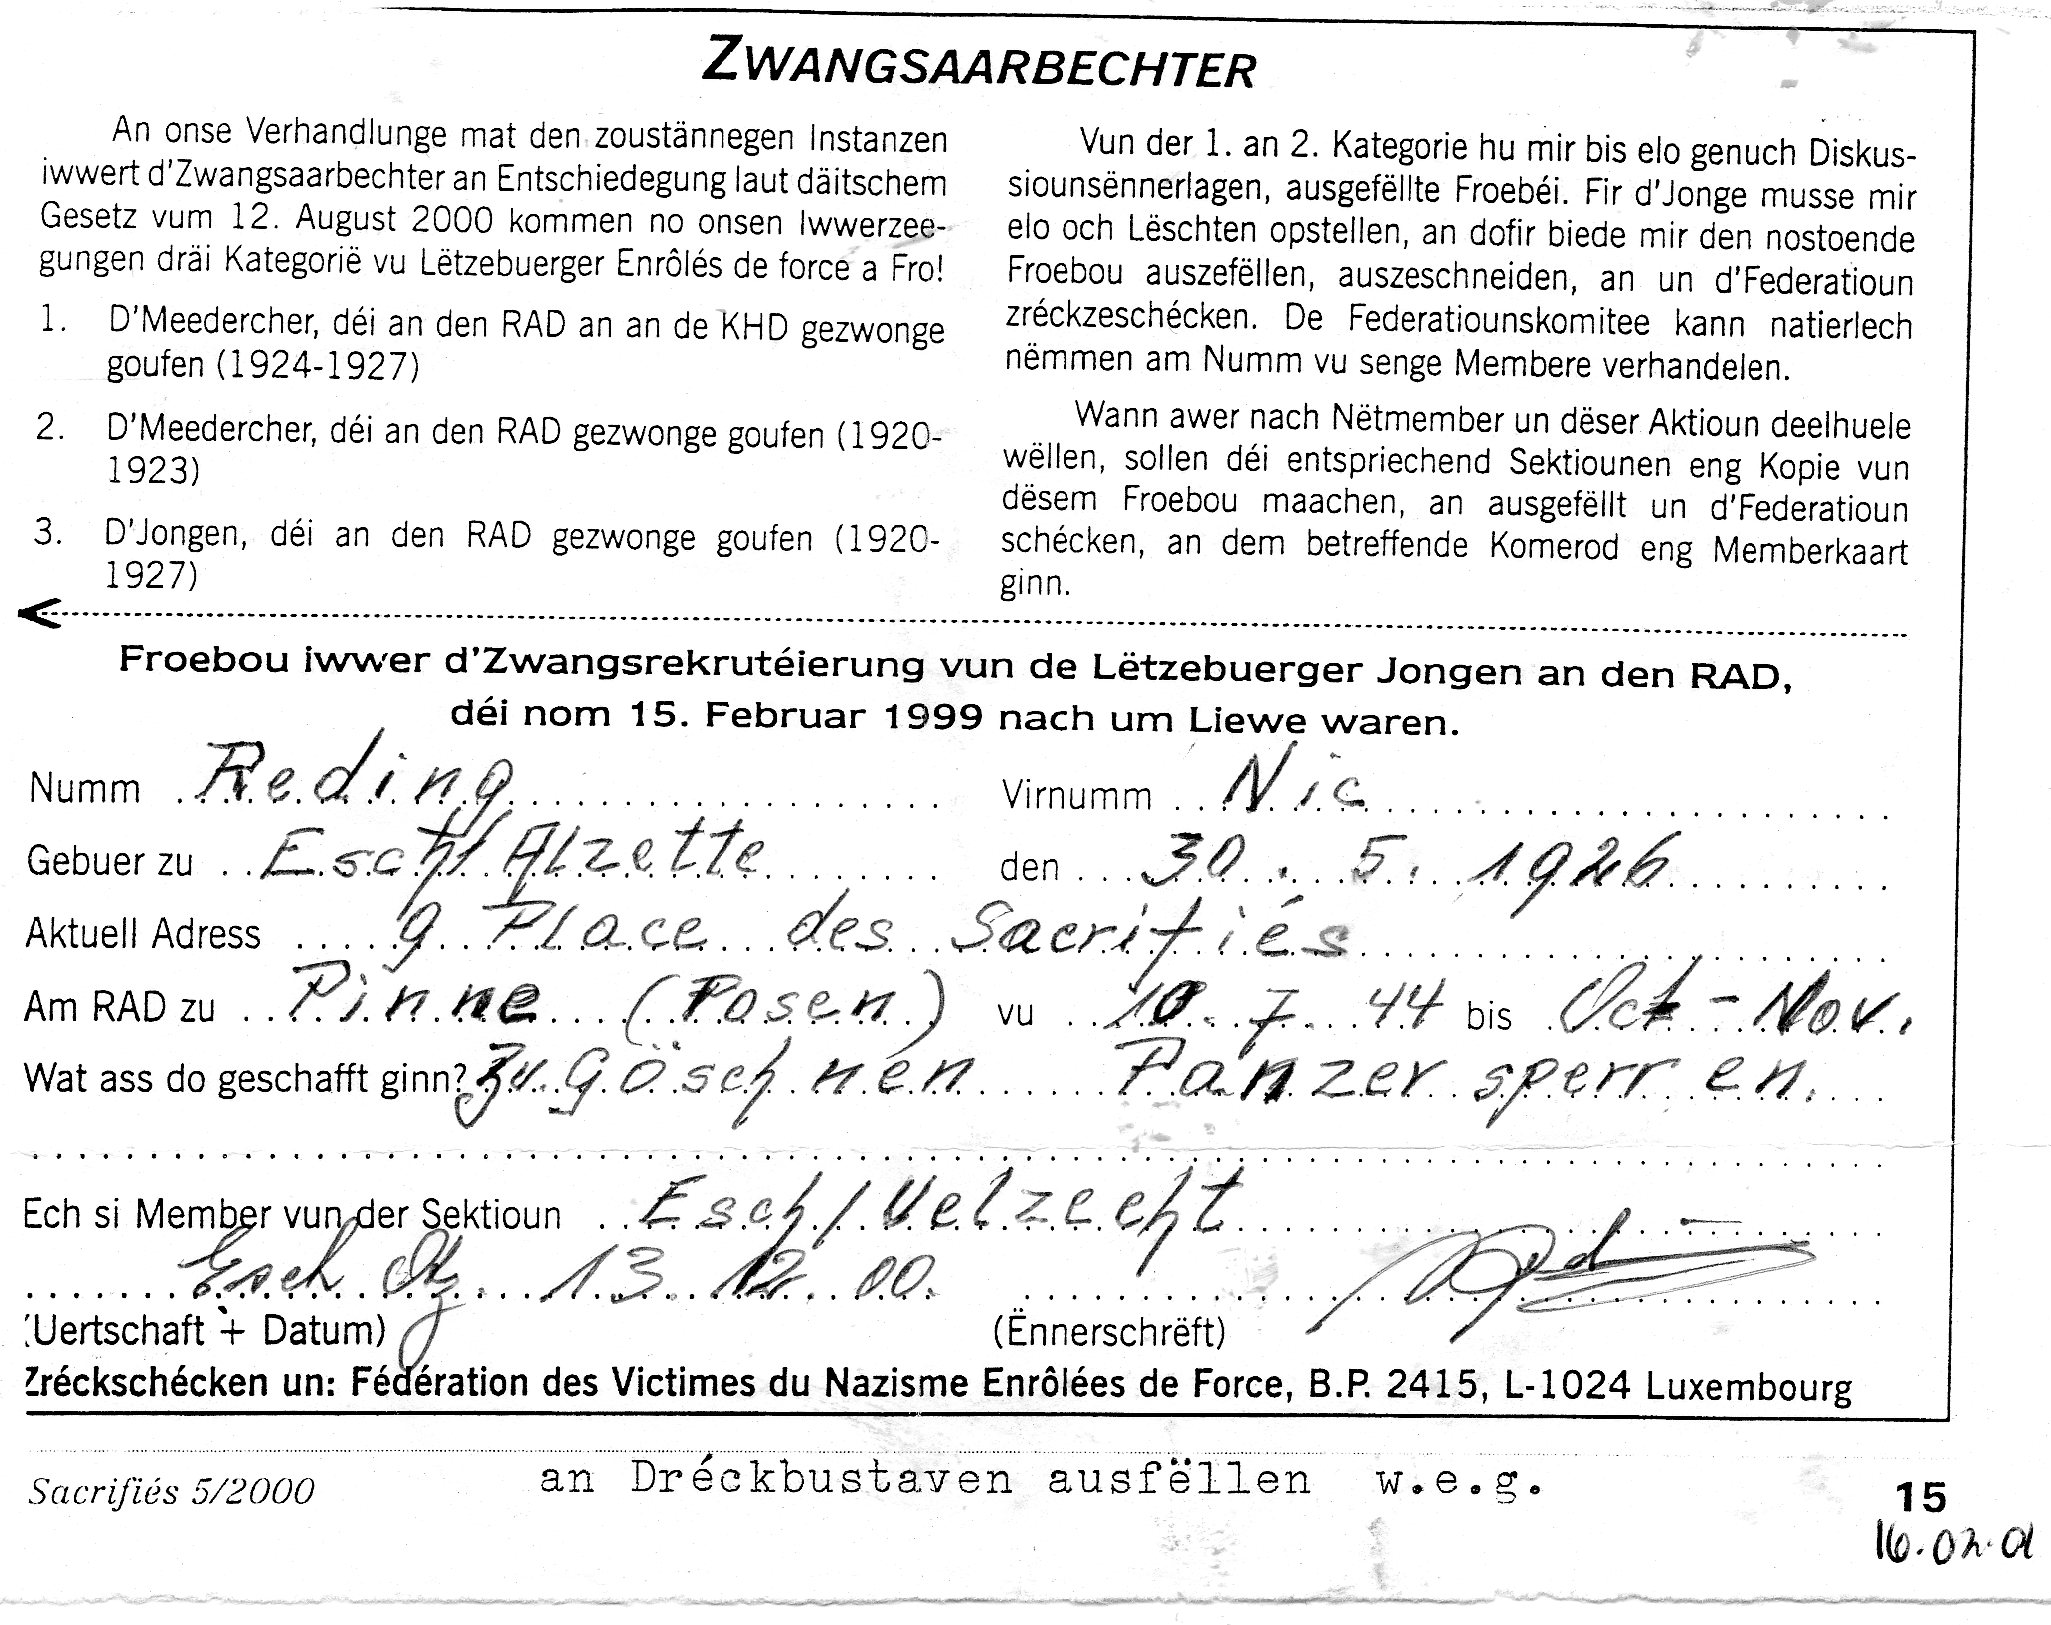 ZWANGSAARBECHTER
An onse Verhandlunge mat den zoustännegen Instanzen
iwwert d'Zwangsaarbechter an Entschiedegung laut däitschem
Gesetz vum 12. August 2000 kommen no onsen Iwwerzee-
gungen dräi Kategorië vu Lëtzebuerger Enrôlés de force a Fro!
1. D'Meedercher, déi an den RAD an an de KHD gezwonge
goufen (1924-1927)
2. D'Meedercher, déi an den RAD gezwonge goufen (1920-
1923)
3. D'Jongen, déi an den RAD gezwonge goufen (1920-
1927)
Vun der 1. an 2. Kategorie hu mir bis elo genuch Diskus-
siounsënnerlagen, ausgefëllte Froebéi. Fir d'Jonge musse mir
elo och Lëschten opstellen, an dofir biede mir den nostoende
Froebou auszefëllen, auszeschneiden, an un d'Federatioun
zréckzeschécken. De Federatiounskomitee kann natierlech
nëmmen am Numm vu senge Membere verhandelen.
Wann awer nach Nëtmember un dëser Aktioun deelhuele
wëllen, sollen déi entspriechend Sektiounen eng Kopie vun
dësem Froebou maachen, an ausgefëllt un d'Federatioun
schécken, an dem betreffende Komerod eng Memberkaart
ginn.
Froebou iwwer d'Zwangsrekrutéierung vun de Lëtzebuerger Jongen an den RAD,
déi nom 15. Februar 1999 nach um Liewe waren.
Numm Reding Virnumm Nic
Gebuer zu Esch/Alzette den 30. 5. 1926
Aktuell Adress 9 Place des Sacrifiés
Am RAD zu Pinne (Posen) vu 10. 7. 44 bis Oct - Nov.
Wat ass do geschafft ginn? Zu Göschnen Panzersperren.
Ech si Member vun der Sektioun Esch/Uelzecht
Esch 13. 12. 00.
(Uertschaft + Datum) (Ënnerschrëft)
Zréckschécken un: Fédération des Victimes du Nazisme Enrôlées de Force, B.P. 2415, L-1024 Luxembourg
Sacrifiés 5/2000 an Dréckbustaven ausfëllen w.e.g. 15
16.02.01